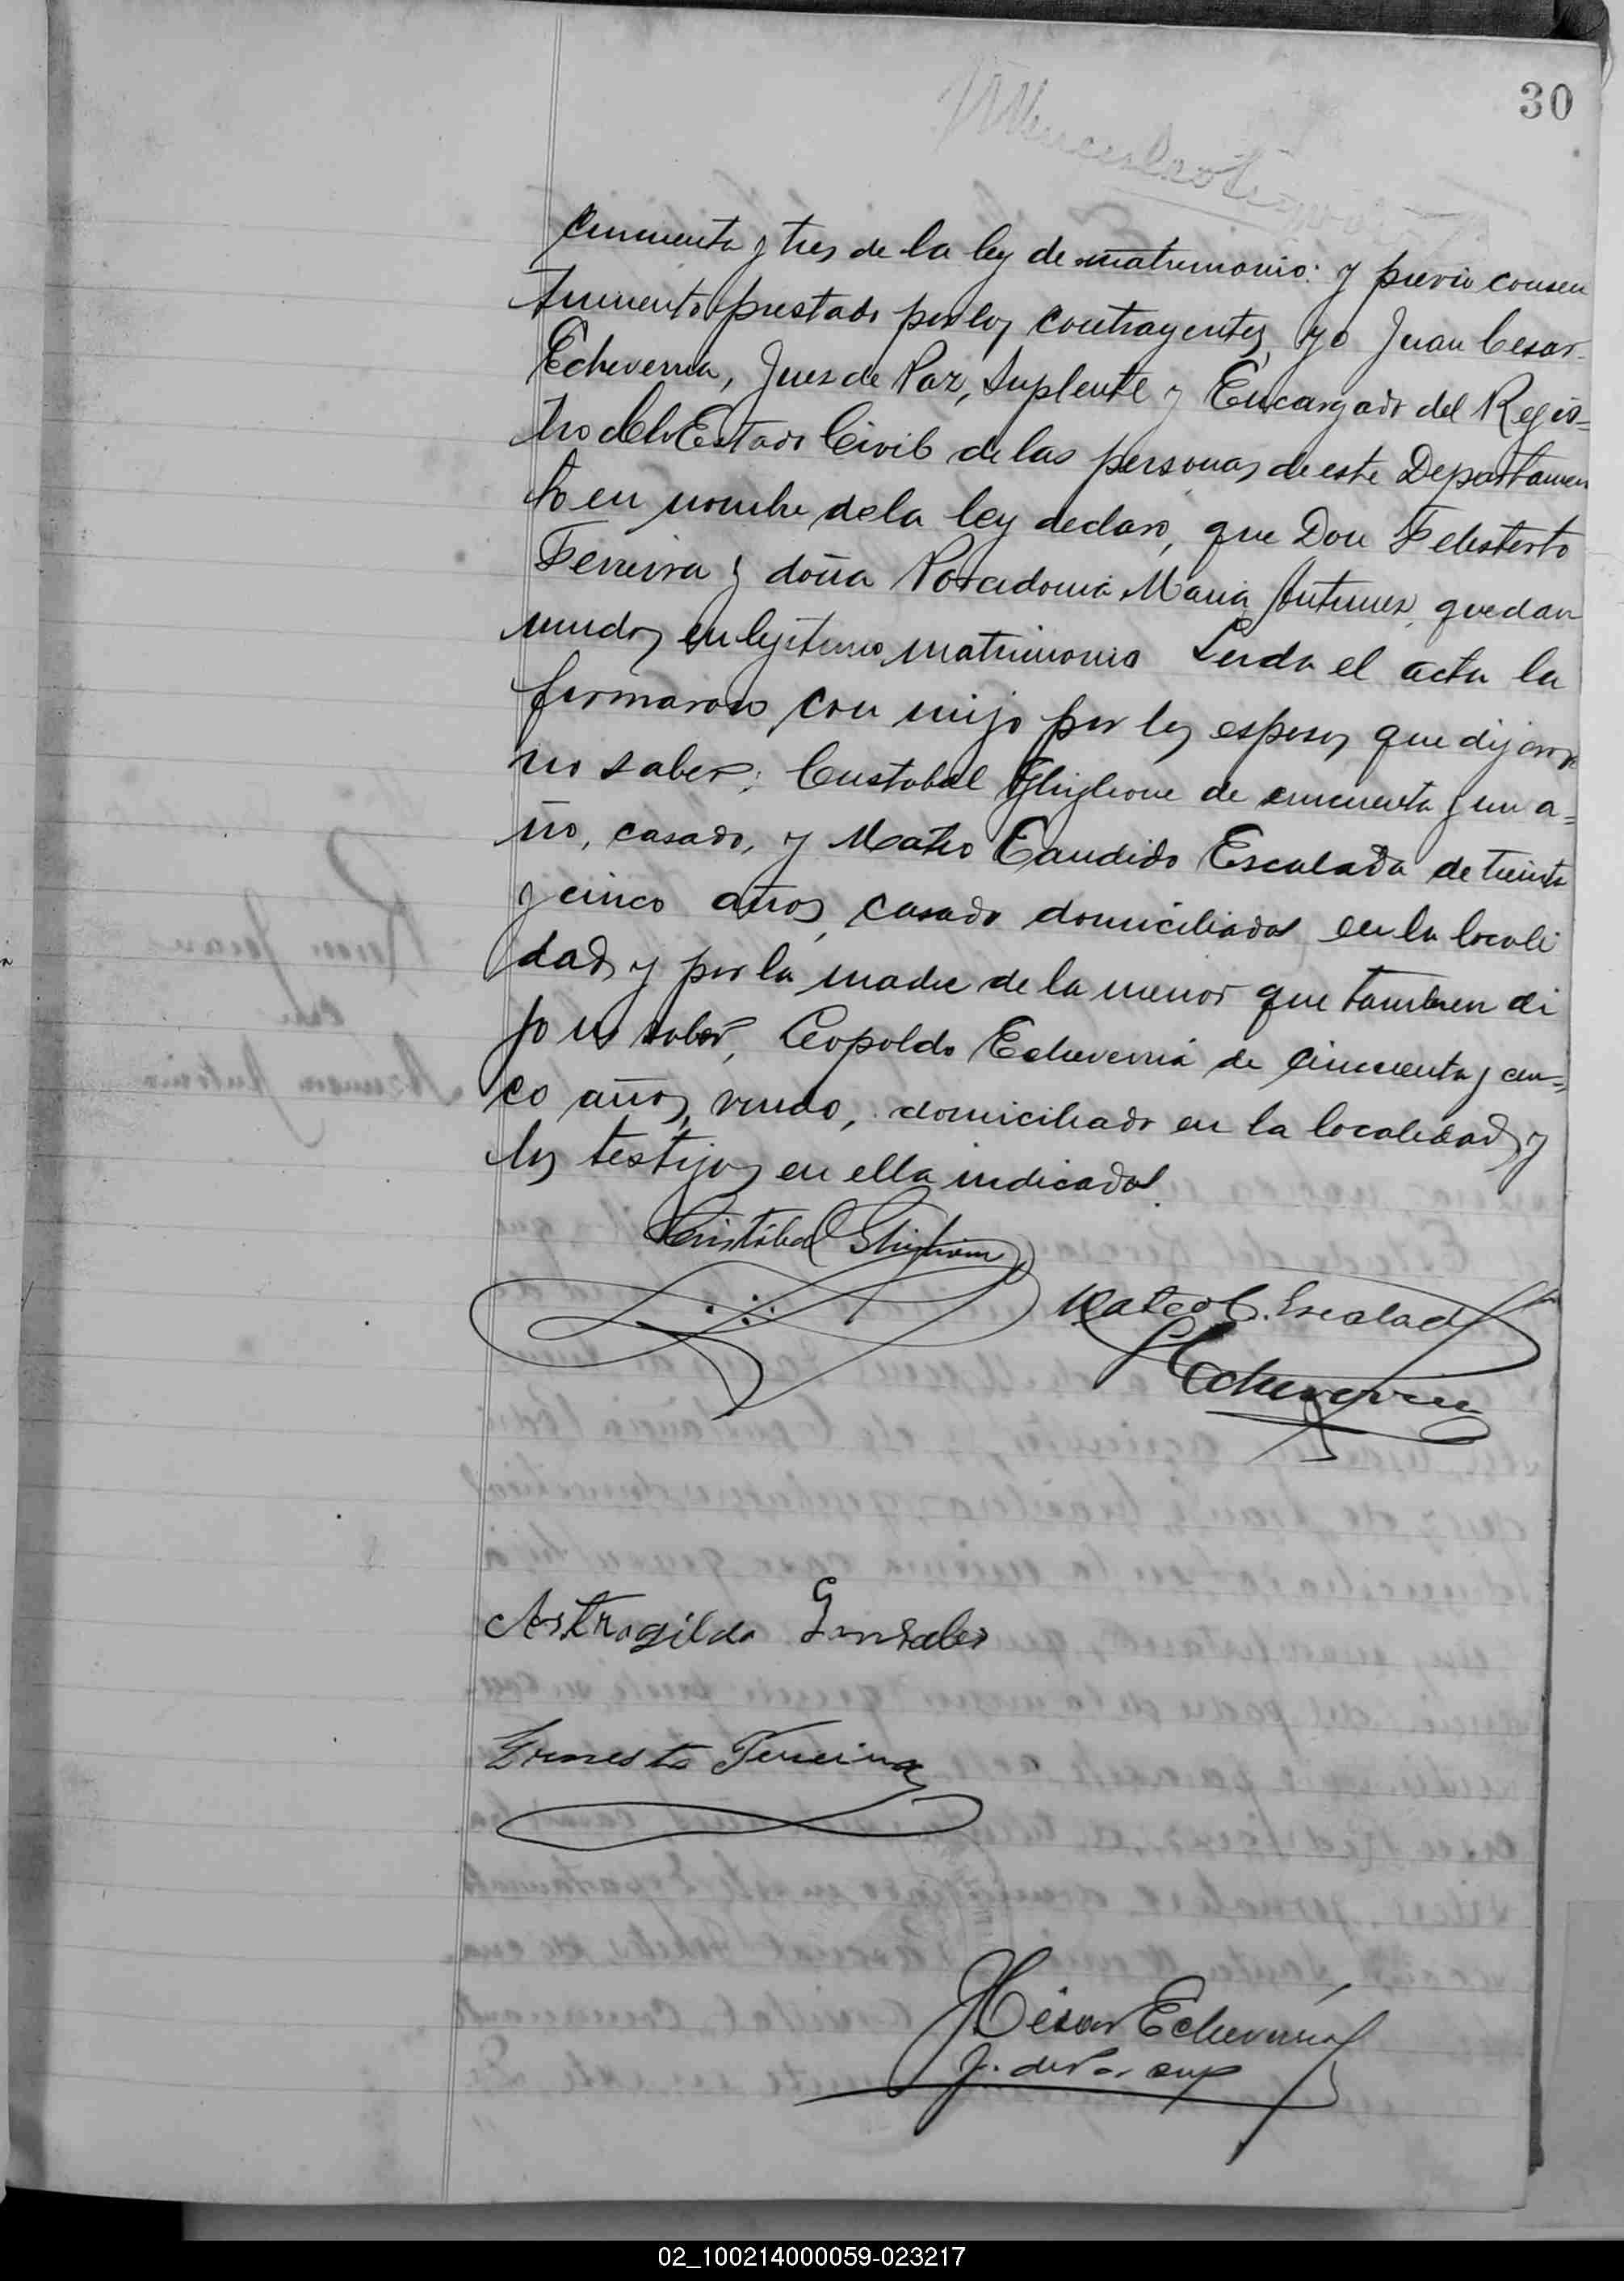 30
cincuenta y tres de la ley de matrimonio: y previo consen
timiento prestado por los contrayentes, yo Juan Cesar
Echeverria, Juez de Paz, Suplente y Encargado del Regis=
tro del Estado Civil de las personas de este Departamen
to en nombre de la ley declaro, que Don Felisberto
Ferreira y doña Poscidonia Maria Antunez, quedan
unidos en lejitimo matrimonio Leida el acta la
firmaron con migo por los esposos que dijeron
no saber; Cristobal Ghiglione de cincuenta y un a=
ño, casado, y Mateo Candido Escalada de treinta
y cinco años, casado domiciliados en la locali
dad y por la madre de la menor que tambien di
jo no saber, Leopoldo Echeverria de cincuenta y cin=
co años, viudo, domiciliado en la localidad y
los testigos en ella indicados.
Cristóbal Ghiglione
Mateo C. Escalada
LEcheverria
Astrogilda Gonzales
Ernesto Ferreira
JCésar Echeverria
J. de Paz sup
02_100214000059-023217